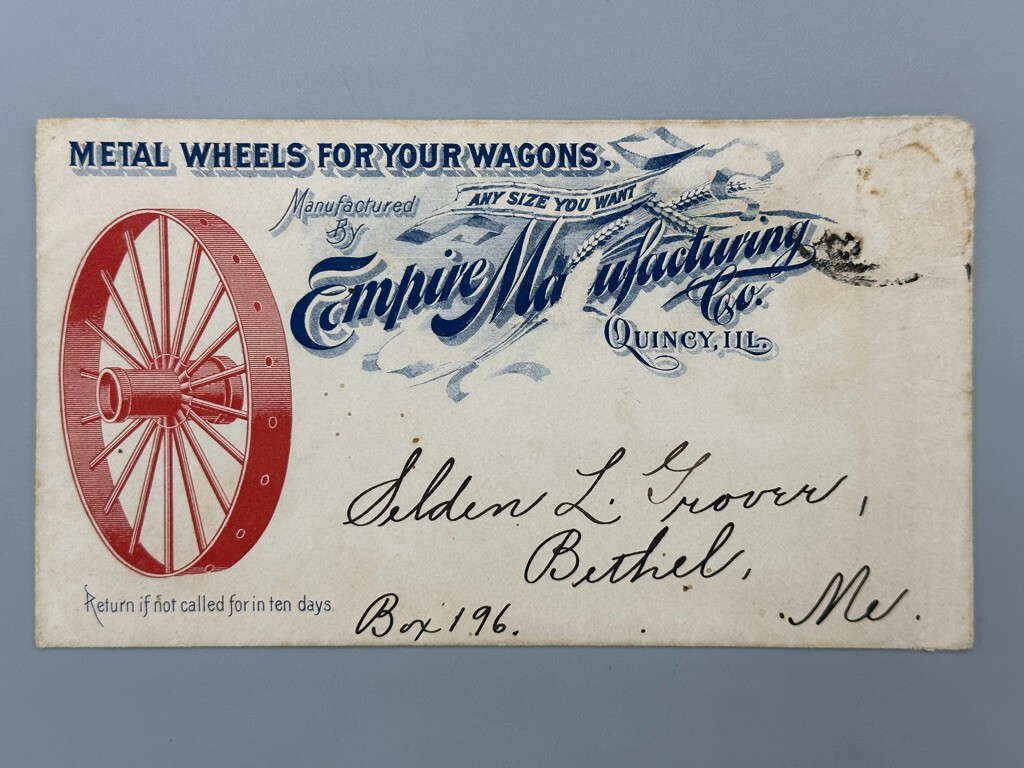 METAL WHEELS FOR YOUR WAGONS.
Manufactured
By
ANY SIZE YOU WANT
Empire Manufacturing
Co.
QUINCY, ILL.
Selden L. Grover,
Bethel,
Me.
Box 196.
Return if not called for in ten days.